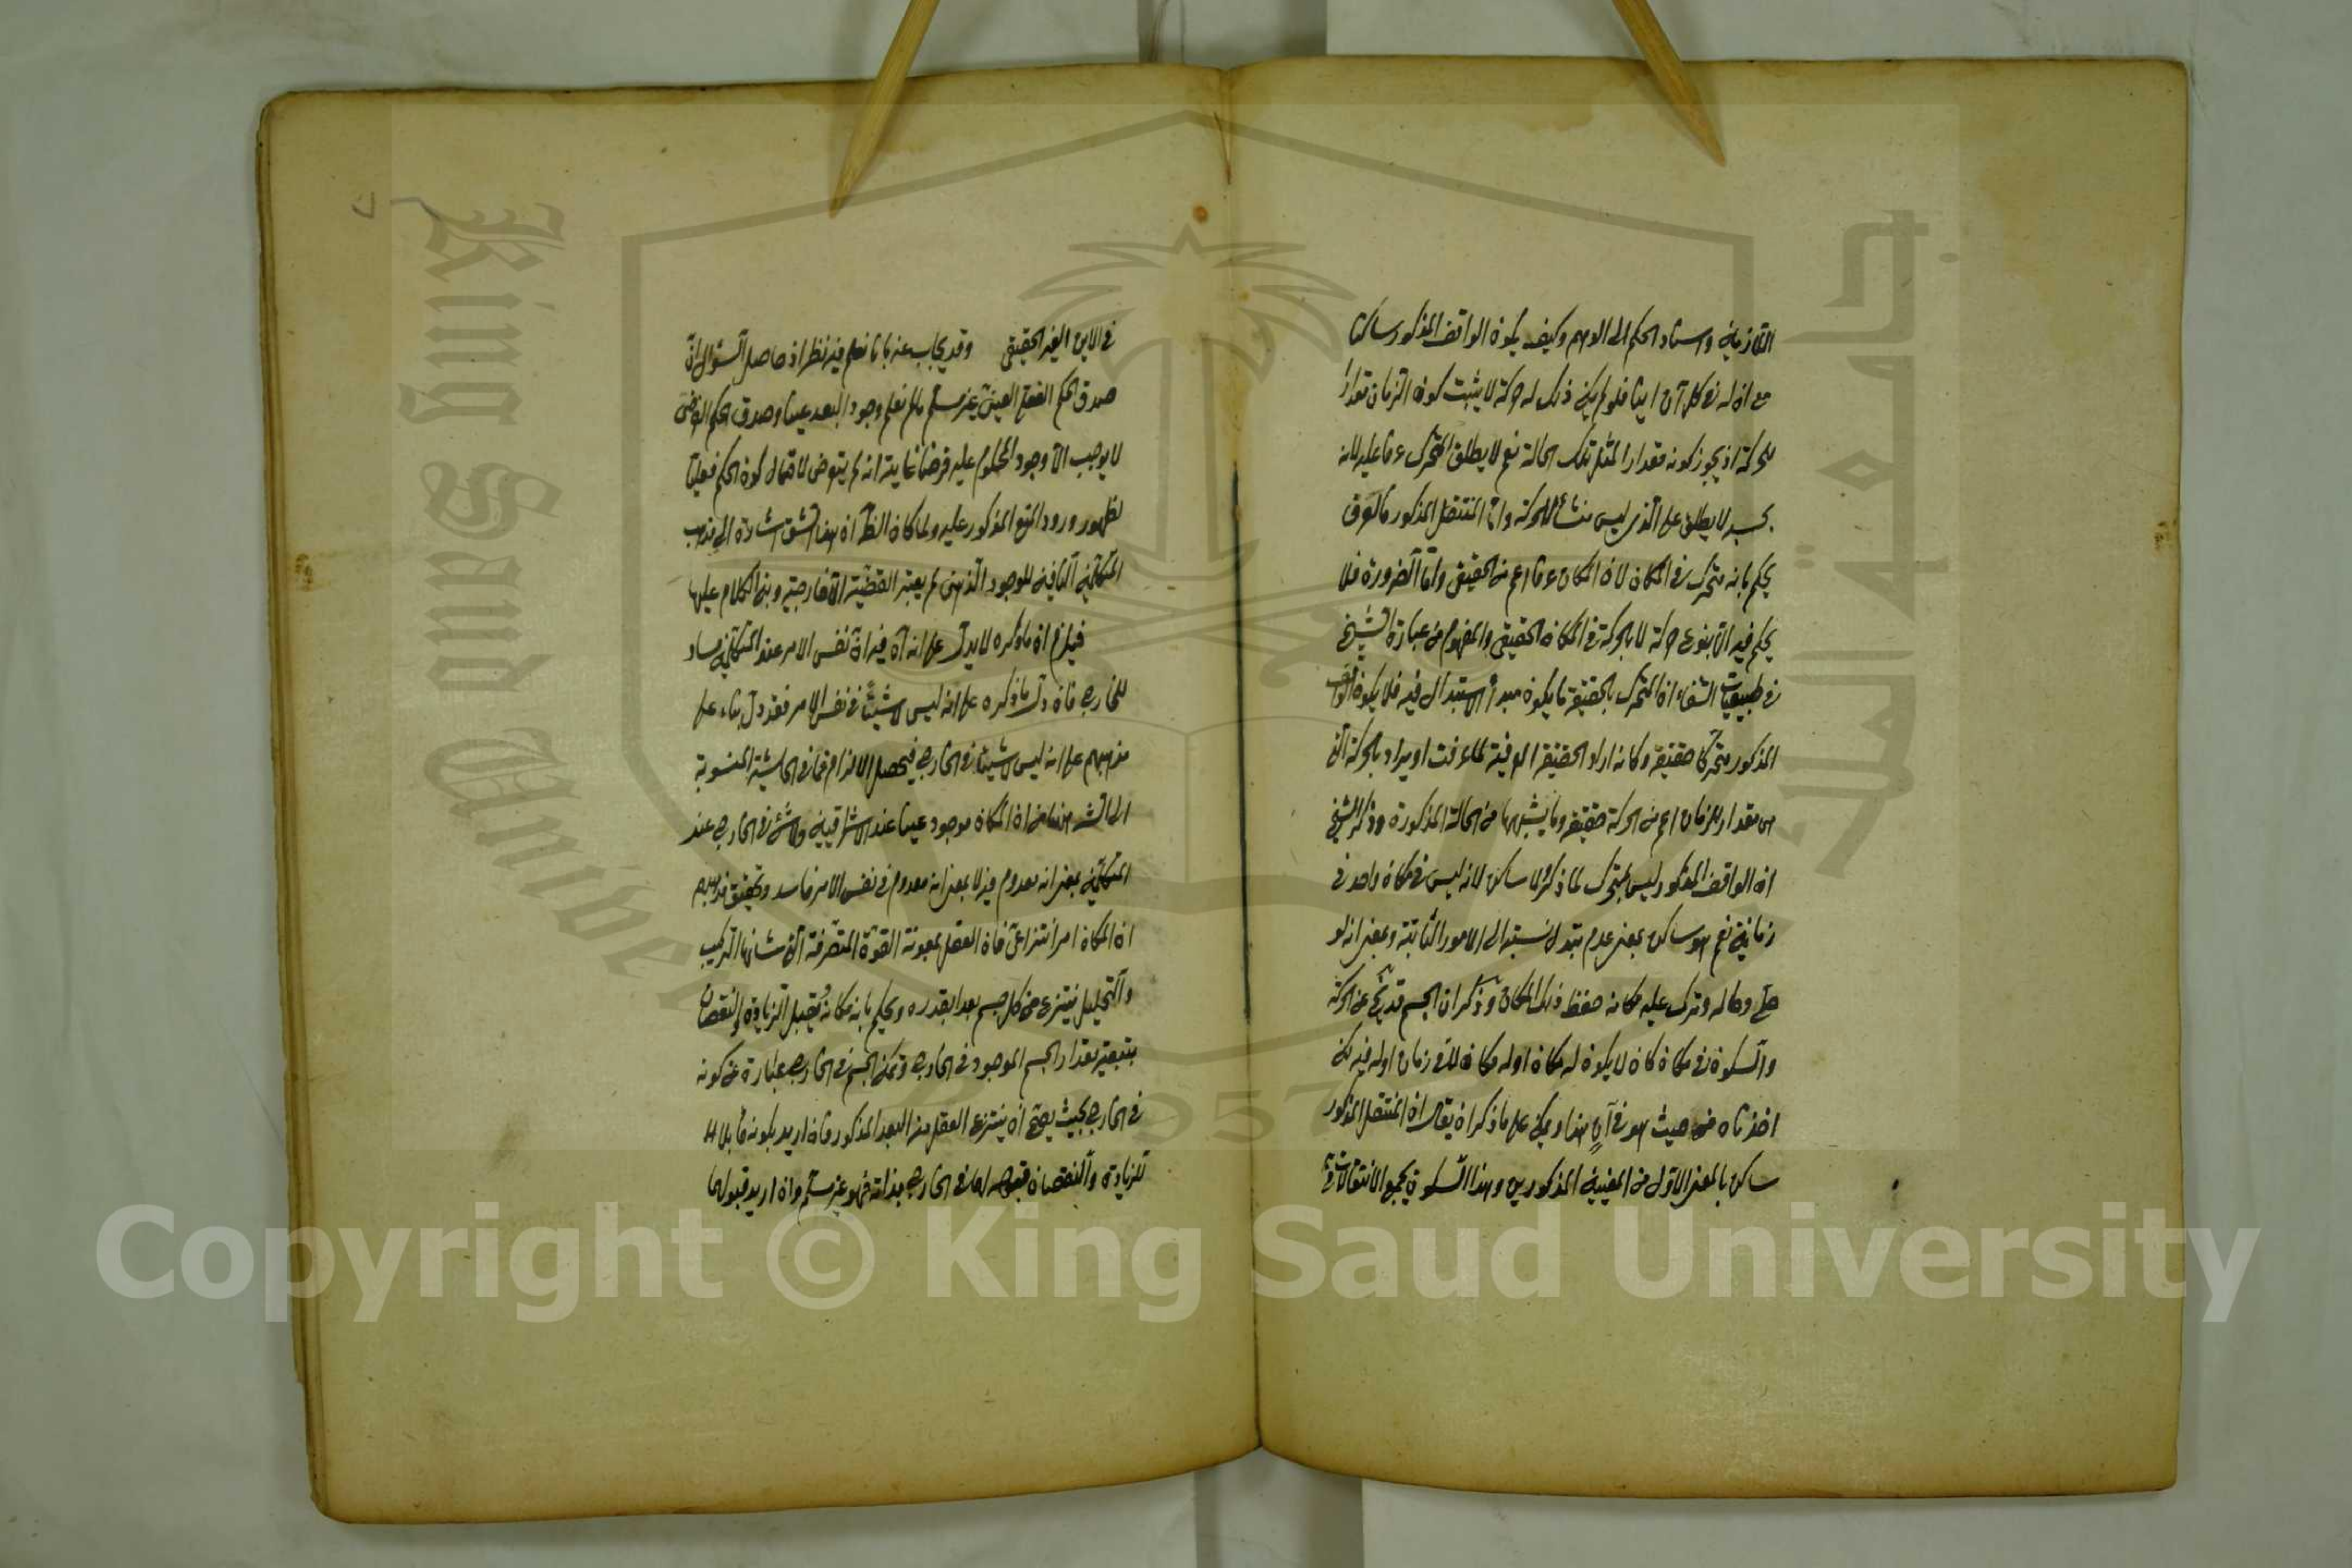 الزمانية واسناد الحكم الى الوهم وكيف يكون الواقف المذكور ساكنا
مع ان له في كل آن اينا فلو لم يكن ذلك له حركة لا يثبت كون الزمان مقدارا
للحركة اذ يجوز كونه مقدارا لمثل تلك الحالة نعم لا يطلق المتحرك عرفا عليه لانه
بحسبه لا يطلق على الذي ليس منشأ للحركة واما المنتقل المذكور فالعرف
يحكم بانه متحرك في المكان لان المكان عرفا اعم من الحقيقي واما الضرورة فلا
يحكم فيه الا بنوع حركة لا بالحركة في المكان الحقيقي والمفهوم من عبارة الشيخ
في طبيعيات الشفاء ان المتحرك بالحقيقة ما يكون مبدأ الاستبدال فيه فلا يكون الواقف
المذكور متحركا حقيقة وكانه اراد الحقيقة العرفية لما عرفت او يراد بالحركة التي
من مقدار الزمان اعم من الحركة حقيقة وما يشبهها من الحالة المذكورة وذكر الشيخ
ان الواقف المذكور ليس بمتحرك لما ذكر ولا ساكن لانه ليس في مكان واحد في
زمانية نعم هو ساكن بمعنى عدم تبدل نسبته الى الامور الثابتة وبمعنى انه لو
خلي وحاله وترك عليه مكانه حفظ ذلك المكان وذكر ان الجسم قد يخ عن الحركة
والسكون في مكان كان لا يكون له مكان اوله مكان لا في زمان اوله فيه لكن
اخذناه من حيث هو في آن هذا ويمكن على ما ذكر ان يقال ان المنتقل المذكور
ساكن بالمعنى الاول من المعنيين المذكورين وهذا السكون يجمع الانتقالات
في الاين الغير الحقيقي وقد يجاب عنه بانا نعلم فيه نظر اذ حاصل السؤال ان
صدق الحكم الفعلي العيني غير مسلم ما لم نعلم وجود البعد عينا وصدق الحكم الفرضي
لا يوجب الا وجود المحكوم عليه فرضا غايته انه لم يتعرض لاحتمال كون الحكم فعليا
لظهور ورود المنع المذكور عليه ولما كان الظ ان هذا الشق اشارة الى مذهب
المتكلمين النافين للوجود الذهني لم يعتبر القضية الا خارجية وبنى الكلام عليها
فيلزم ان ما ذكره لا يدل على انه لا فيه ان نفس الامر عند المتكلمين مساو
للخارج فان دل ما ذكره على انه ليس لا شيئا في نفس الامر فقد دل بناء على
مذهبهم على انه ليس لا شيئا في الخارج فيحصل الالزام فما في الحاشية المنسوبة
الى الش ههنا من ان المكان موجود عينا عند الاشراقيين ولا شئ في الخارج عند
المتكلمين بمعنى انه معدوم فيه لا بمعنى انه معدوم في نفس الامر فاسد وتحقيق مذهبهم
ان المكان امر انتزاعي فان العقل بمعونة القوة المتصرفة التي شانها التركيب
والتحليل ينتزع من كل جسم بعدا بقدره ويحكم بانه مكانه يقبل الزيادة والنقصان
بتبعية مقدار الجسم الموجود في الخارج وتمكن الجسم في الخارج عبارة عن كونه
في الخارج بحيث يصح ان ينتزع العقل منه البعد المذكور فان اريد بكونه قابلا
للزيادة والنقصان قبوله لهما في الخارج بذاته فهو غير مسلم وان اريد قبولهما
Copyright © King Saud University
King Saud University
1957